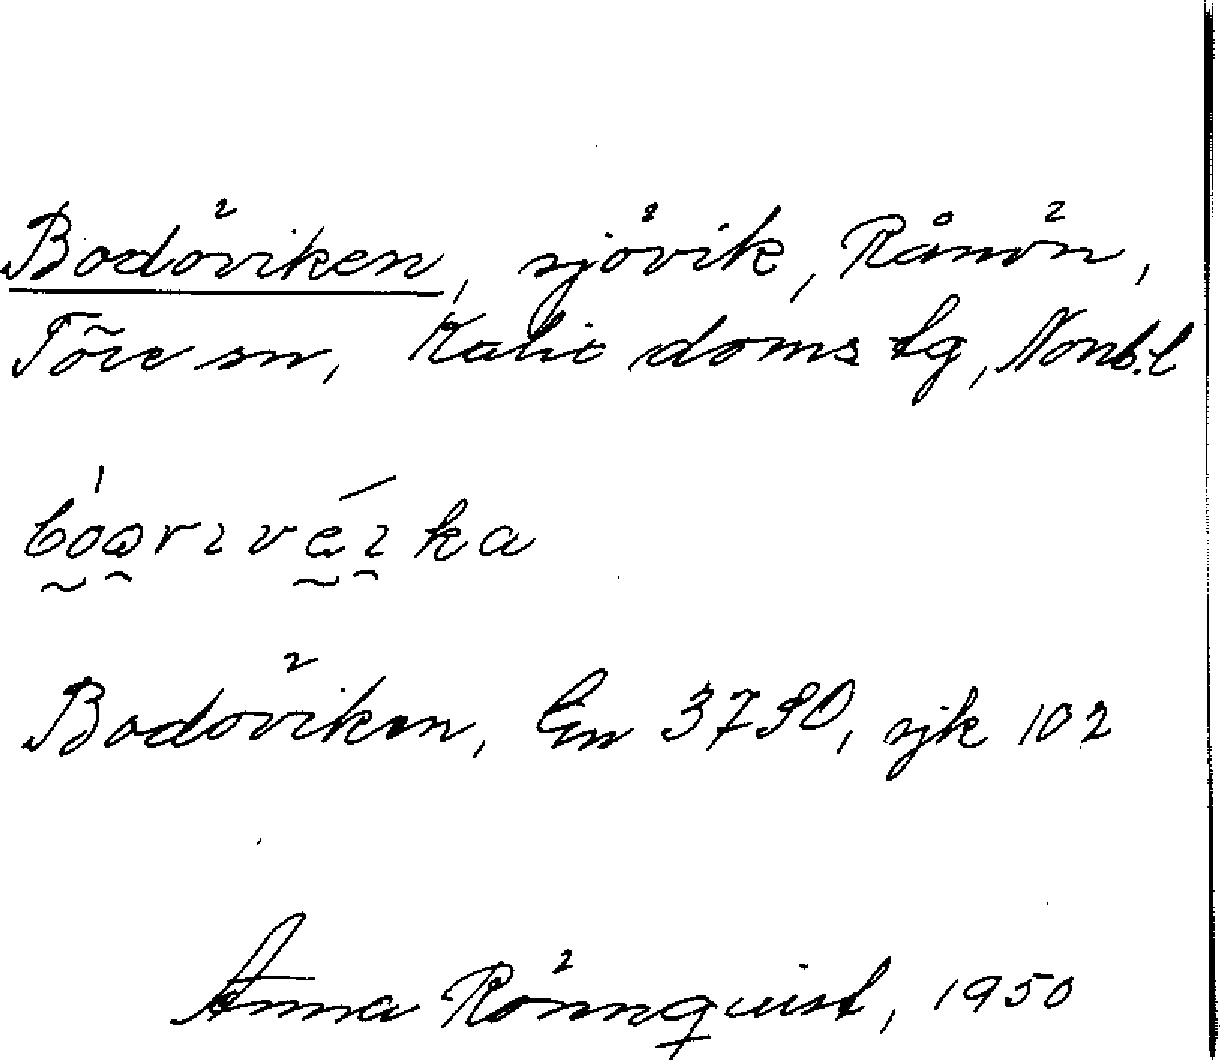 Bodöviken, sjövik, Rånön,
Töre sn, Kalix doms lg, Norrb. l
Bodöviken, En 3790, sjk 102
Anna Rönnquist, 1950